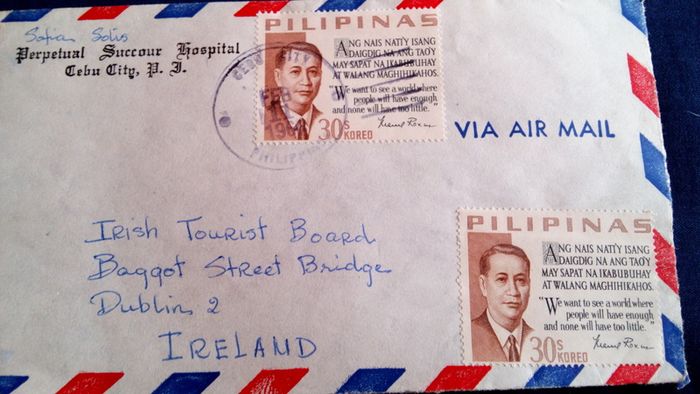 Sofia Solis
Perpetual Succour Hospital
Cebu City, P. I.
PILIPINAS
ANG NAIS NATI'Y ISANG
DAIGDIG NA ANG TAO'Y
MAY SAPAT NA IKABUBUHAY
AT WALANG MAGHIHIKAHOS.
"We want to see a world where
people will have enough
and none will have too little."
Manuel Roxas
30s
KOREO
CEBU CITY
FEB
PHILIPPINES
VIA AIR MAIL
Irish Tourist Board
Baggot Street Bridge
Dublin 2
IRELAND
PILIPINAS
ANG NAIS NATI'Y ISANG
DAIGDIG NA ANG TAO'Y
MAY SAPAT NA IKABUBUHAY
AT WALANG MAGHIHIKAHOS.
"We want to see a world where
people will have enough
and none will have too little."
Manuel Roxas
30s
KOREO